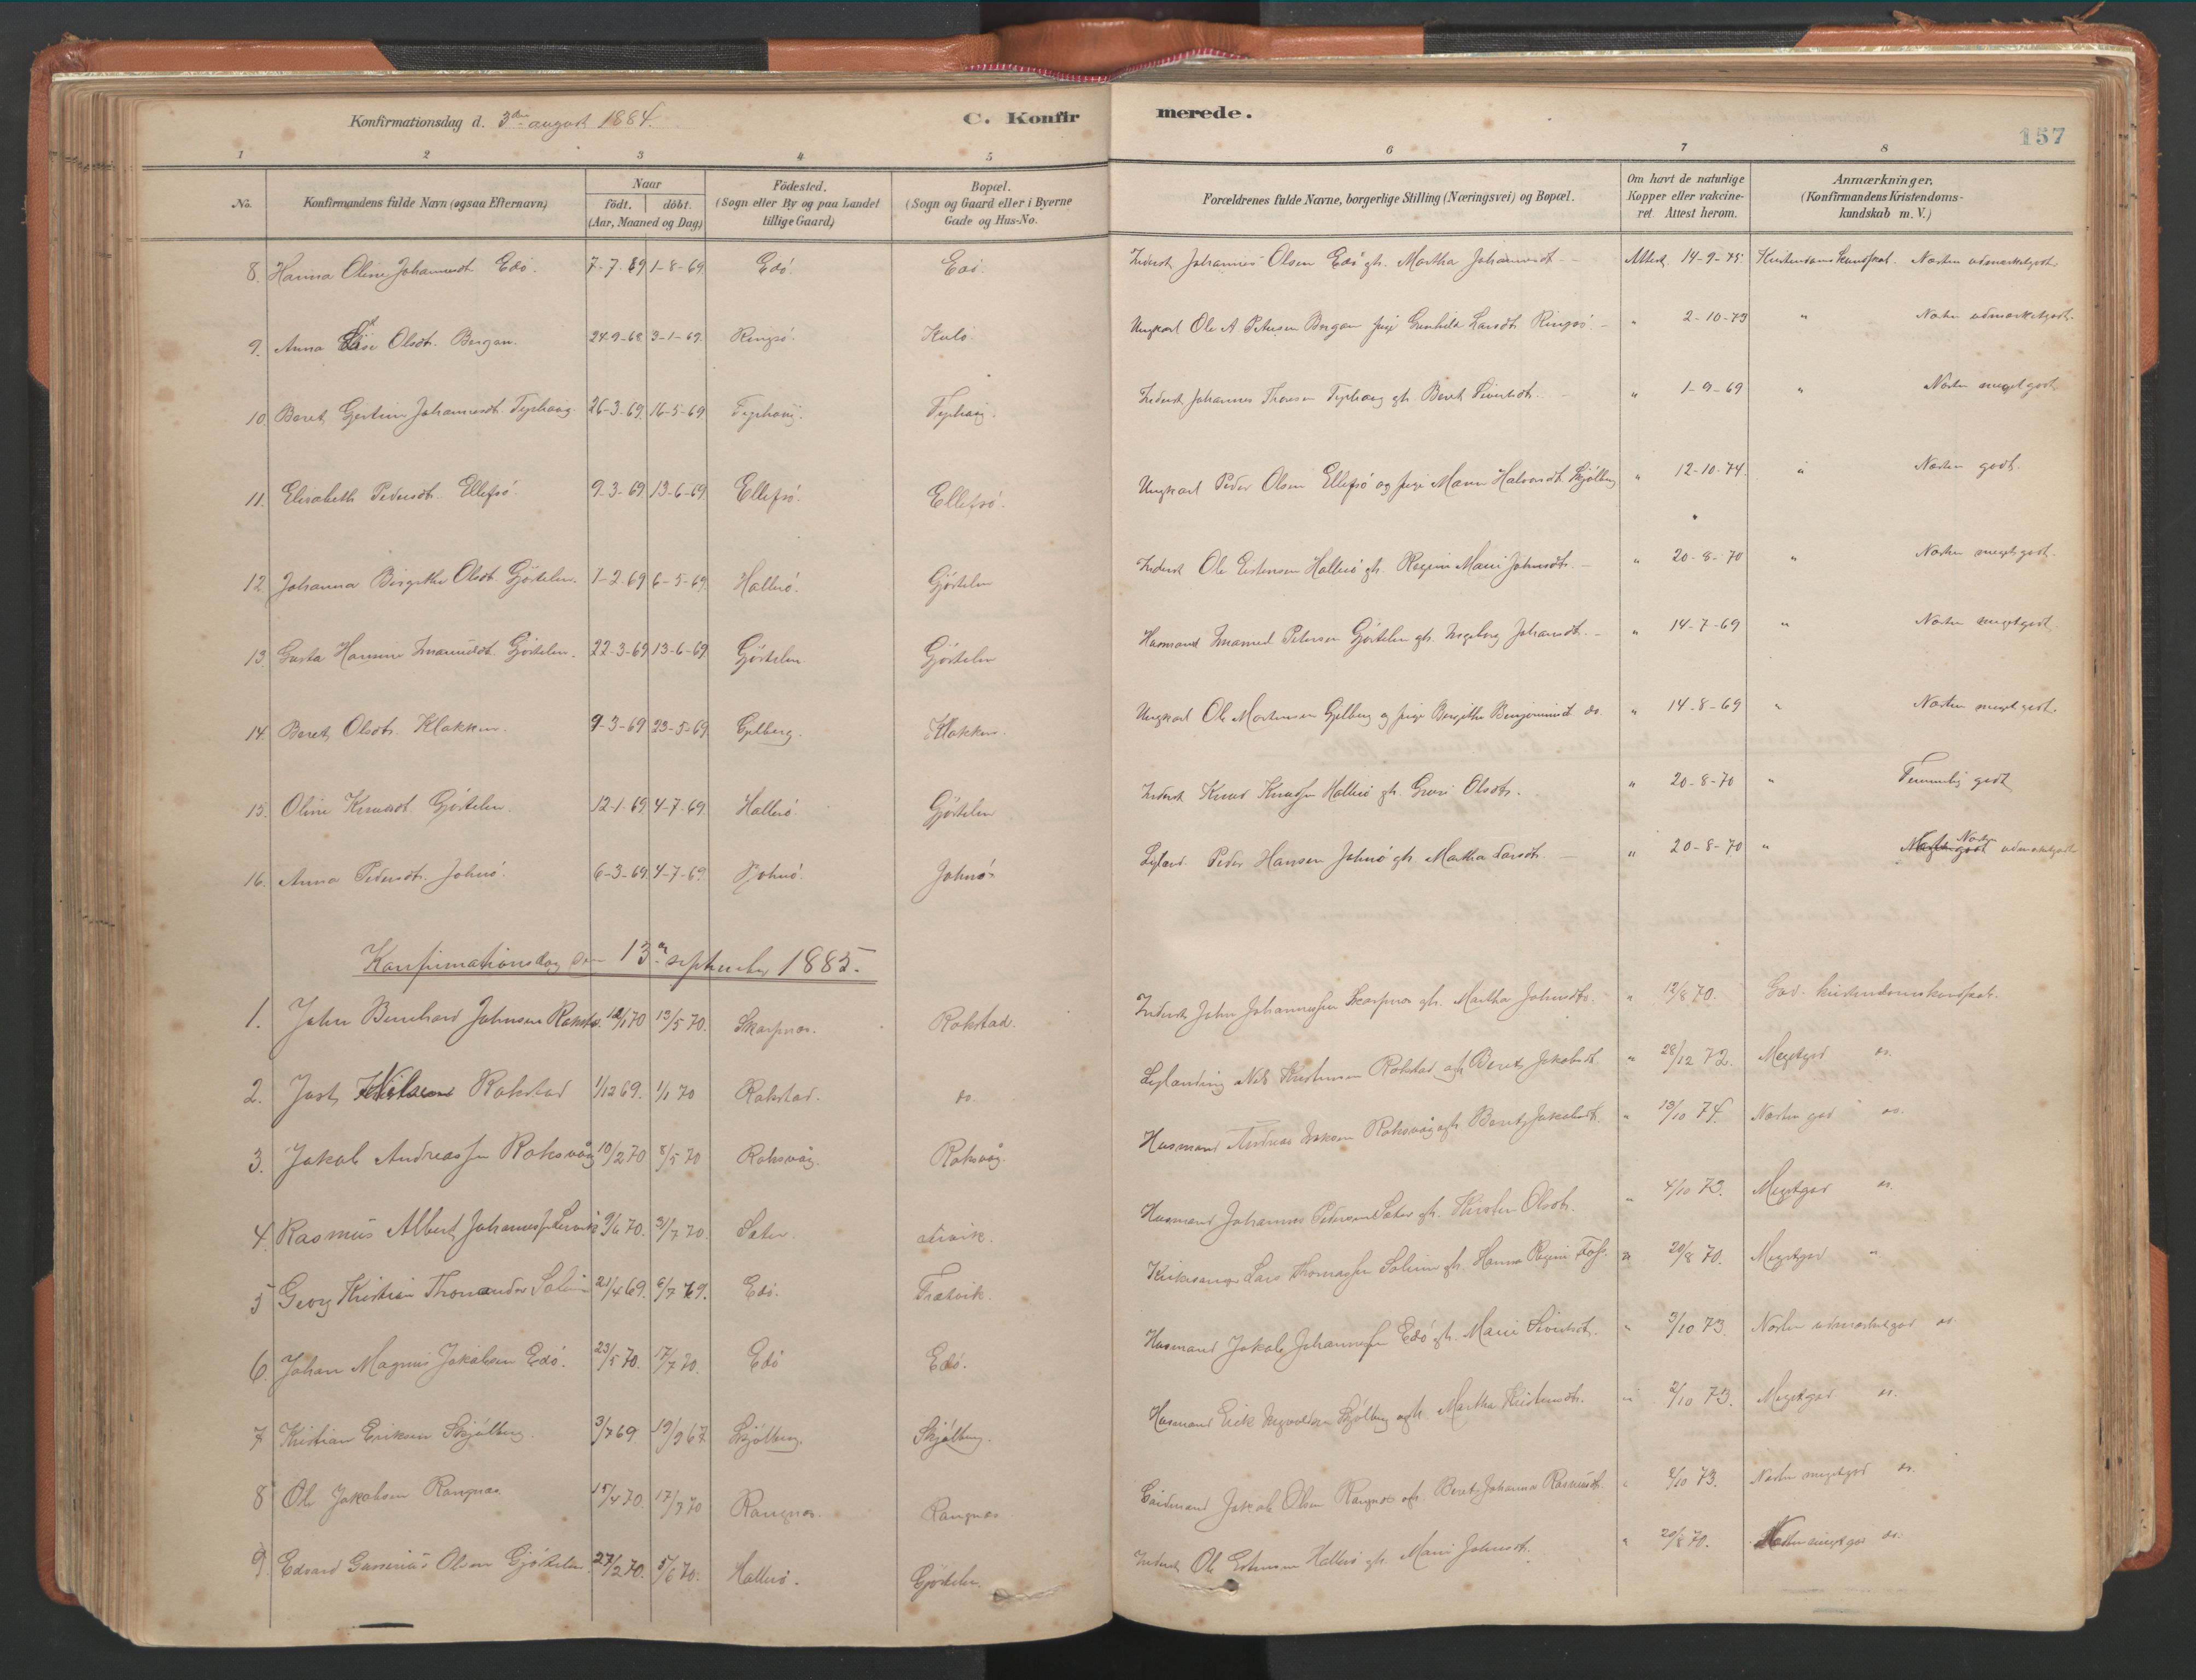 Konfirmationsdag d. 3die august 1884. C. Konfirmerede.
157
1 2 3 4 5 6 7 8
No. Konfirmandens fulde Navn (ogsaa Efternavn) Naar födt. döbt. (Aar, Maaned og Dag) Födested. (Sogn eller By og paa Landet tillige Gaard) Bopæl. (Sogn og Gaard eller i Byerne Gade og Hus-No. Forældrenes fulde Navne, borgerlige Stilling (Næringsvei) og Bopæl. Om havt de naturlige Kopper eller vakcineret. Attest herom. Anmærkninger. (Konfirmandens Kristendomskundskab m. V.)
8. Hanna Oline Johannesdt. Edö. 7-7-69 1-8-69 Edö. Edö. Inderst Johannes Olsen Edö gh. Martha Johannesdt. Attest 14-9-75 Kristendomskundskab. Næsten udmærketgodt
9. Anna Olsdtr. Bergan. 24-9-68 3-1-69. Ringsö. Kulö. Ungkarl Ole A Petersen Bergan pige Gunhild Larsdt. Ringsö. " 2-10-73 " Næsten udmærketgodt.
10. Beret Gjertine Johannesdt. Typhaug 26-3-69. 16-5-69 Typhaug. Typhaug. Inderst Johannes Thoresen Typhaug gh. Beret Sivertsdt. " 1-9-69 " Næsten megetgodt
11. Elisabeth Pedersdt. Ellefsö. 9-3-69 13-6-69 Ellefsö. Ellefsö. Ungkarl Peder Olsen Ellefsö og pige Maren Halvorsdt. Skjölberg " 12-10-74. " Næsten godt.
12. Johanna Birgithe Olsdt. Gjöstelen. 1-2-69 6-5-69. Hallesö. Gjöstelen Inderst Ole Estensen Hallesö gh. Regine Marie Johnsdtr. " 20-8-70 " Næsten megetgodt.
13. Hansine Gjöstelen. 22-3-69 13-6-69 Gjöstelen Gjöstelen Husmand Petersen Gjöstelen gh. Ingeborg Johansdt. " 14-7-69 " Næsten megetgodt.
14. Beret Olsdtr. Klakken. 9-3-69 23-5-69 Gjelberg. Klakken. Ungkarl Ole Mortensen Gjelberg og pige Bergithe Benjaminsdt do. " 14-8-69 " Næsten megetgodt.
15. Oline Knudsdt. Gjöstelen. 12-1-69 4-7-69. Hallesö. Gjöstelen Inderst Knud Knudsen Hallesö gh. Olsdtr. " 20-8-70 " Temmelig godt
16. Anna Pedersdtr. Johnö. 6-3-69. 4-7-69. Johnö. Johnö. Peder Hansen Johnö gh. Martha Larsdtr. " 20-8-70 " Næsten udmærketgodt
Konfirmationsdag den 13de september 1885.
1. John Bernhard Johnsen Rokstad 13/5 70. Skarpnes. Rokstad. Inderst John Johannessen Skarpnes gh. Martha Johnsdtr. " 12/8 70. God kristendomskundskab.
2. Just Nilsen Rokstad 1/12 69. 1/1 70 Rokstad. do. Leylænding Nils Rokstad gh. Beret Jakobsdt. " 28/12 72. Megetgod do.
3. Jakob Andreassen Roksvåg 10/2 70 8/5 70 Roksvåg. Roksvåg. Husmand Andreas Roksvåg gh. Beret Jakobsdt. " 13/10 74. Næsten god do.
4. Rasmus Albert Johannessen Leirvik 9/6 70. 31/7 70. Sæter. Leirvik. Husmand Johannes Pedersen Sæter gh. Kirsten Olsdt. " 4/10 73. Megetgod do.
5 Georg Kristian Thomander Solem 21/4 69. 6/7 69. Edö. Frætvik. Kirkesanger Lars Thomassen Solem gh. Hanna Regine Foss. " 20/8 70. Megetgod "
6. Johan Magnus Jakobsen Edö. 23/5 70. 17/7 70. Edö Edö. Husmand Jakob Johannessen Edö gh. Marie Sivertsdt. " 3/10 73. Næsten udmærketgod do.
7 Kristian Eriksen Skjölberg. 3/7 69 19/9 67. Skjölberg. Skjölberg. Husmand Erik Ingvoldsen Skjölberg gh. Martha Kristensdtr. " 2/10 73. Megetgod do.
8 Ole Jakobsen Rangnes 15/4 70. 17/7 70 Rangnes. Rangnes. Jakob Olsen Rangnes gh. Beret Johanna Rasmusdt. " 2/10 73. Næsten megetgod do.
9. Edvard Olsen Gjöstelen. 27/2 70. 5/6 70. Hallesö. Gjöstelen. Inderst Ole Estensen Hallesö gh. Marie Johnsdt. " 20/8 70. Næsten megetgod do.